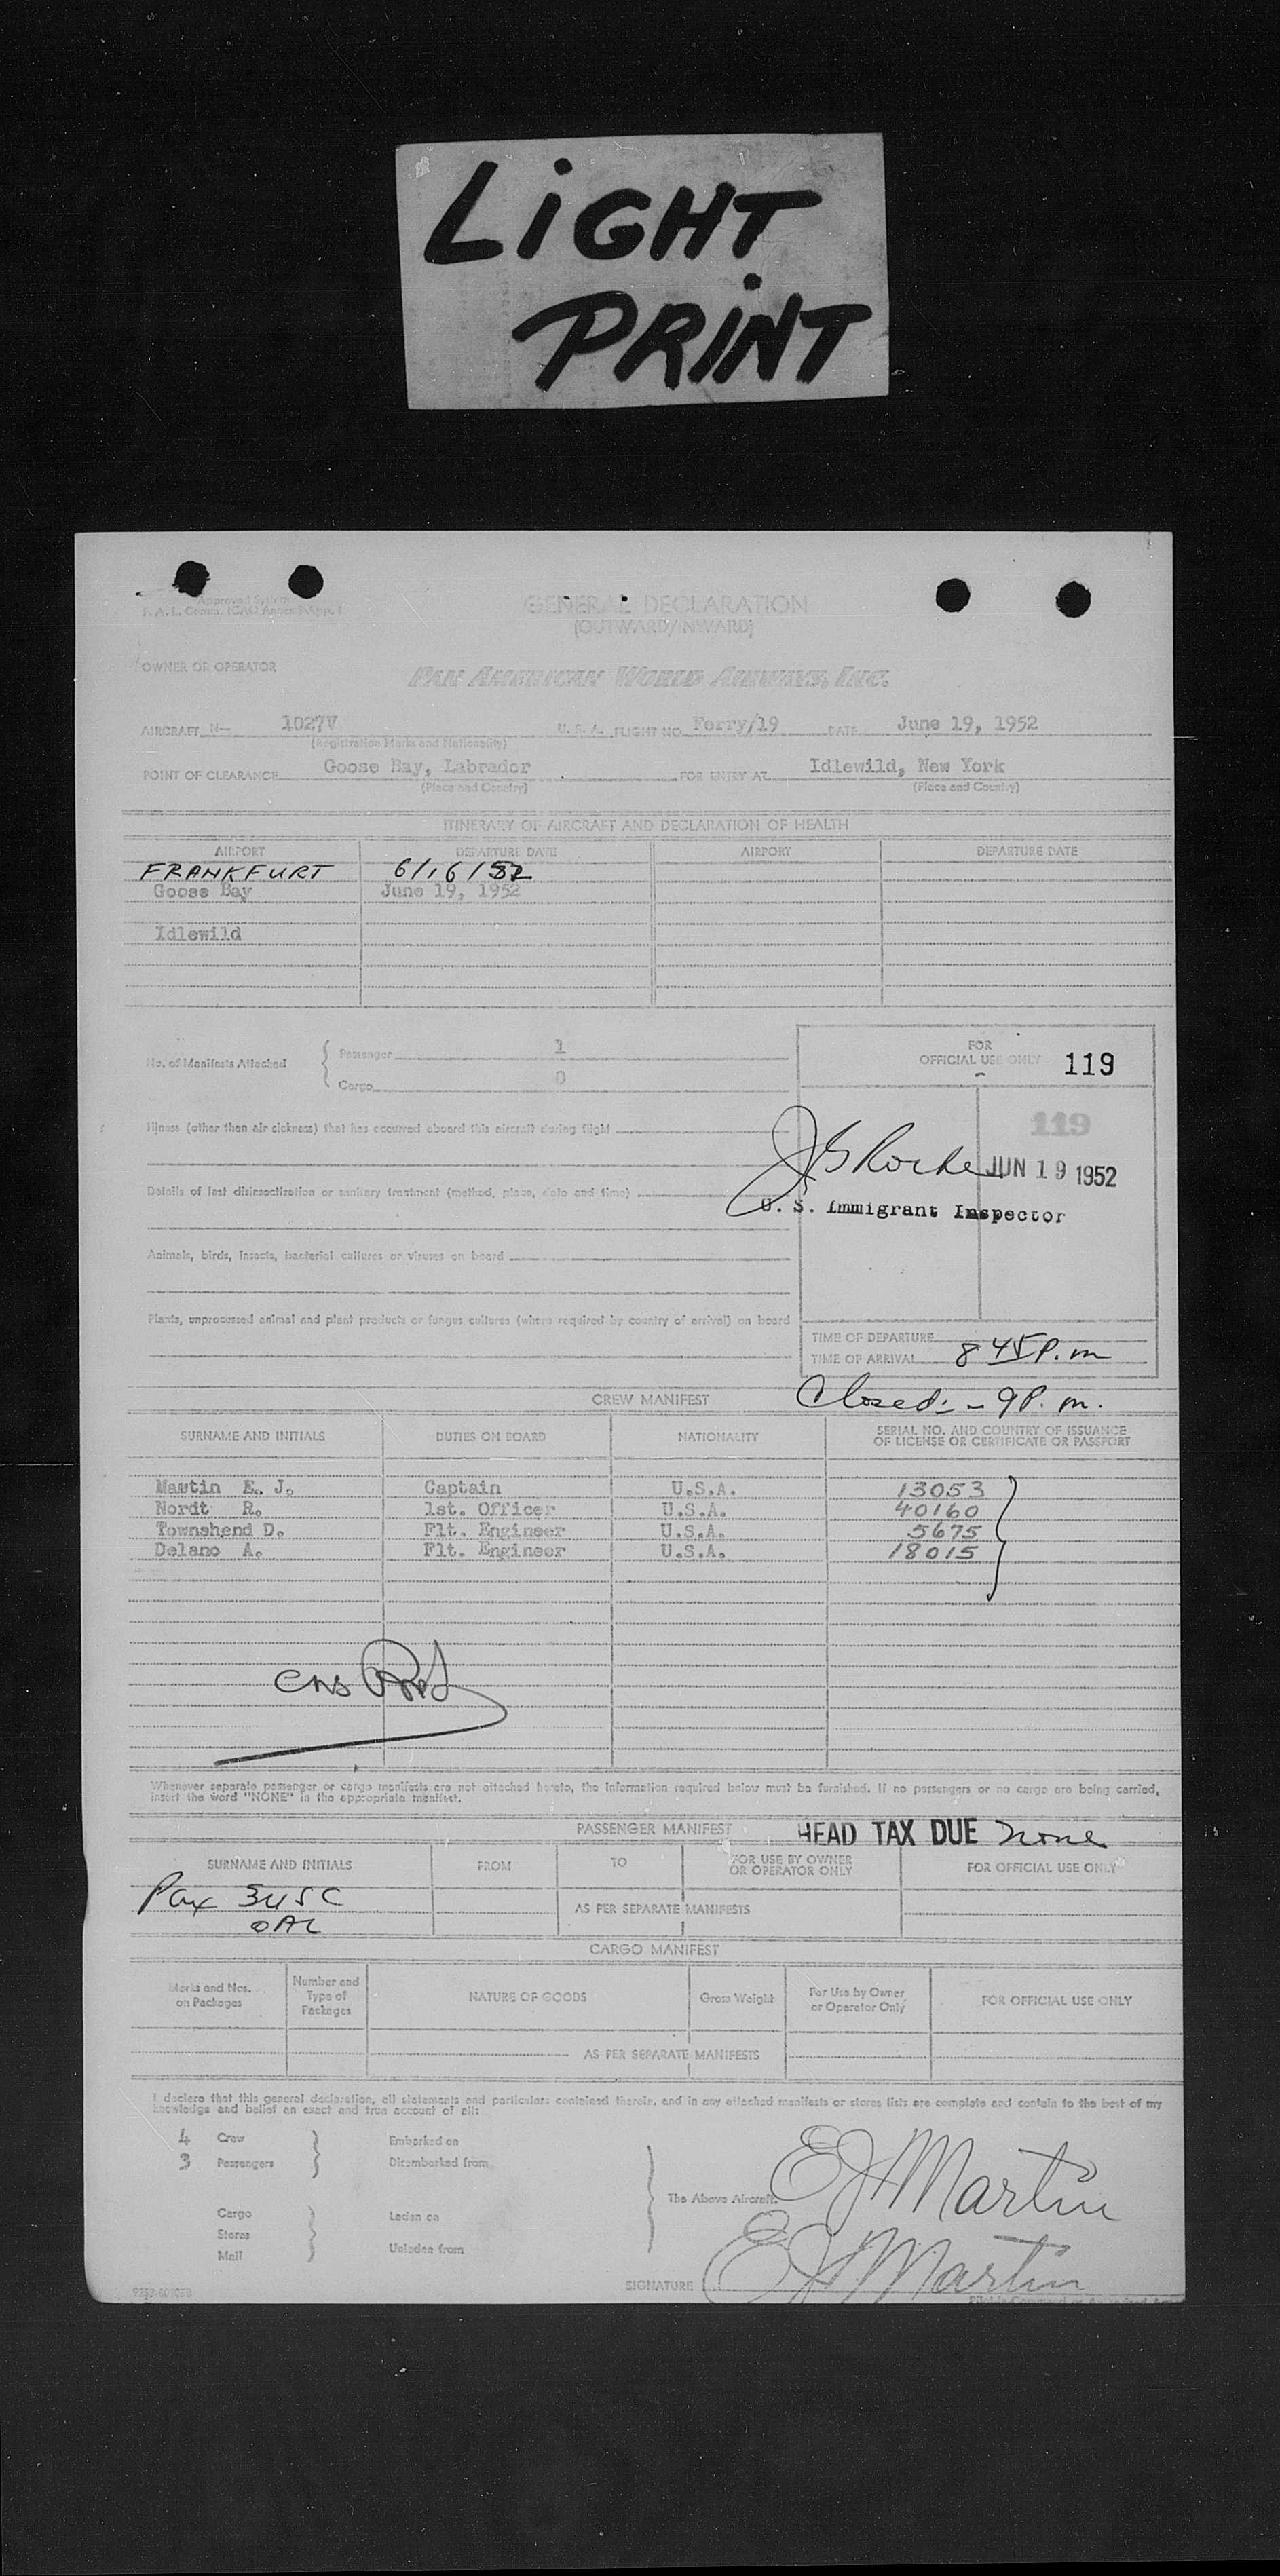 LiGHT
PRiNT
Approved System
GENERAL DECLARATION
(OUTWARD/INWARD)
OWNER OR OPERATOR
PAN AMERICAN WORLD AIRWAYS, INC.
AIRCRAFT N— 1027V U. S. A. FLIGHT NO. Ferry/19 DATE June 19, 1952
(Registration Marks and Nationality)
POINT OF CLEARANCE Goose Bay, Labrador FOR ENTRY AT Idlewild, New York
(Place and Country) (Place and Country)
ITINERARY OF AIRCRAFT AND DECLARATION OF HEALTH
AIRPORT DEPARTURE DATE AIRPORT DEPARTURE DATE
FRANKFURT 6/16/52
Goose Bay June 19, 1952
Idlewild
No. of Manifests Attached { Passenger 1
Cargo 0
FOR
OFFICIAL USE ONLY 119
119
Illness (other than air sickness) that has occurred aboard this aircraft during flight
JUN 19 1952
Details of last disinsectization or sanitary treatment (method, place, date and time)
U. S. Immigrant Inspector
Animals, birds, insects, bacterial cultures or viruses on board
Plants, unprocessed animal and plant products or fungus cultures (where required by country of arrival) on board
TIME OF DEPARTURE
TIME OF ARRIVAL 8 45 P. m
CREW MANIFEST Closed:- 9 P. m.
SURNAME AND INITIALS DUTIES ON BOARD NATIONALITY SERIAL NO. AND COUNTRY OF ISSUANCE
OF LICENSE OR CERTIFICATE OR PASSPORT
Martin E. J. Captain U.S.A. 13053
Nordt R. 1st. Officer U.S.A. 40160
Townshend D. Flt. Engineer U.S.A. 5675
Delano A. Flt. Engineer U.S.A. 18015
Whenever separate passenger or cargo manifests are not attached hereto, the information required below must be furnished. If no passengers or no cargo are being carried,
insert the word "NONE" in the appropriate manifest.
PASSENGER MANIFEST HEAD TAX DUE None
SURNAME AND INITIALS FROM TO FOR USE BY OWNER
OR OPERATOR ONLY FOR OFFICIAL USE ONLY
Pax 3 USC
0 AL
AS PER SEPARATE MANIFESTS
CARGO MANIFEST
Marks and Nos.
on Packages Number and
Type of
Packages NATURE OF GOODS Gross Weight For Use by Owner
or Operator Only FOR OFFICIAL USE ONLY
AS PER SEPARATE MANIFESTS
I declare that this general declaration, all statements and particulars contained therein, and in any attached manifests or stores lists are complete and contain to the best of my
knowledge and belief an exact and true account of all:
4 Crew Embarked on
3 Passengers Disembarked from
The Above Aircraft. EJ Martin
Cargo Laden on
Stores
Mail Unladen from
SIGNATURE EJ Martin